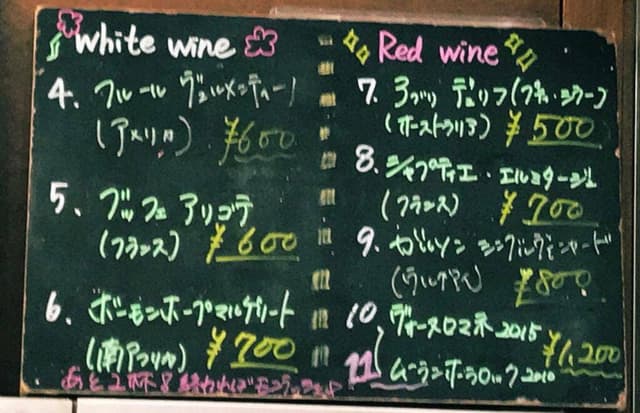 White wine
4. フルール ヴェルメンティーノ
(アメリカ) ¥600
5. ブッフェ アリゴテ
(フランス) ¥600
6. ボーモンホープマルゲリート
(南アフリカ) ¥700
あと2杯
Red wine
7. デュリフ(プティ・シラー)
(オーストラリア) ¥500
8. シャプティエ・エルミタージュ
(フランス) ¥700
9. ガルソン シングルヴィンヤード
(ウルグアイ) ¥800
10 ヴォーヌロマネ 2015
¥1,200
11 ムーランホーラロック 2010